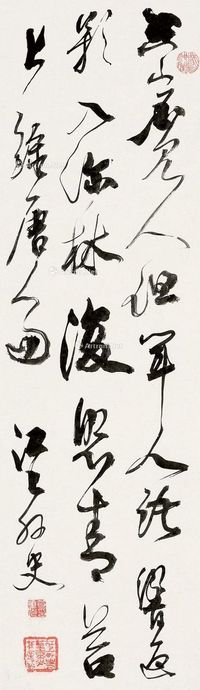 空山不見人但聞人語響返
影入深林復照青苔
上 錄唐人句
外史